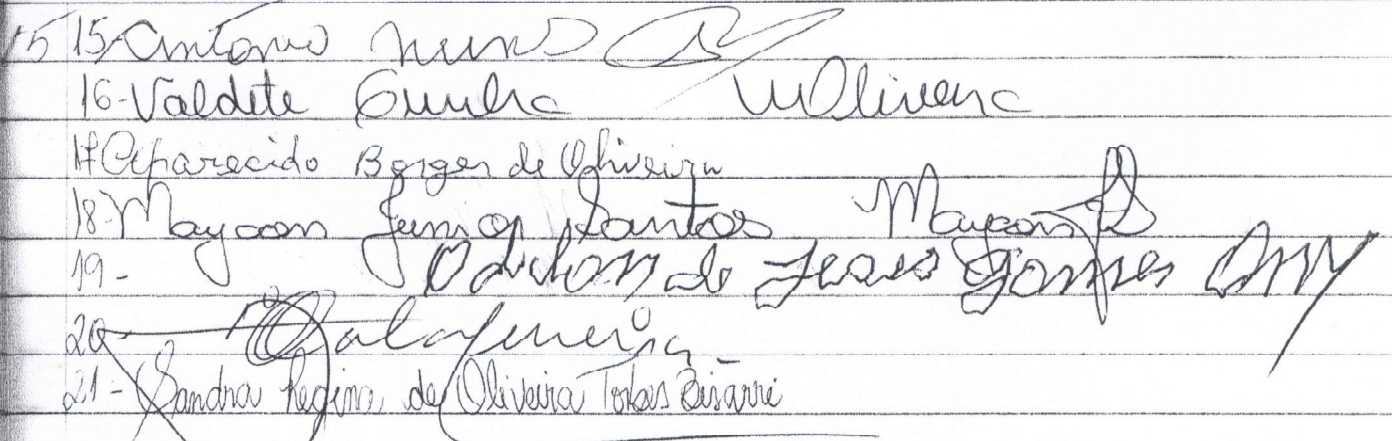 15 15- Antonio Nunes
16- Valdete Cunha W Oliveira
17 Aparecido Borges de Oliveira
18- Maycon Junior Santos Maycon
19- Odilon de Jesus Gomes
20-
21- Sandra Regina de Oliveira Torres Bisarri